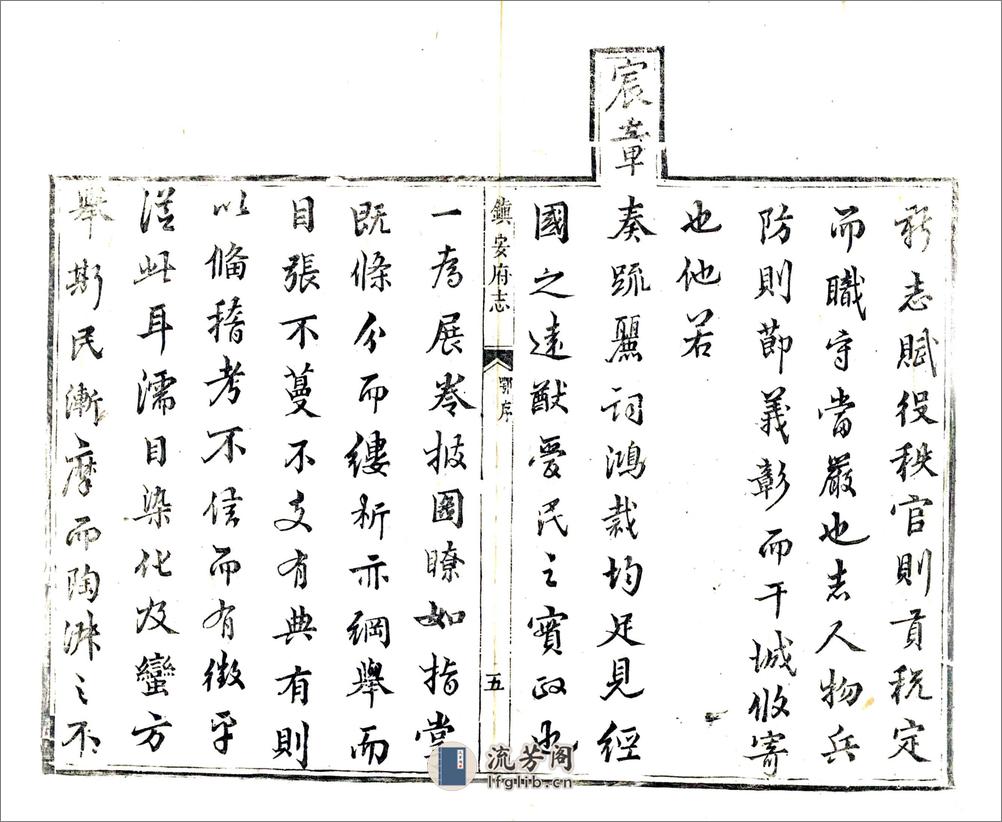 新志賦役秩官則貢稅定
而職守當嚴也志人物兵
防則節義彰而干城攸寄
也他若
宸章
奏疏麗詞鴻裁均足見經
國之遠猷愛民之實政也
鎮安府志
鄂序
五
一為展卷披圖瞭如指掌
既條分而縷析亦綱舉而
目張不蔓不支有典有則
以備稽考不信而有徵乎
從此耳濡目染化及蠻方
舉斯民漸摩而陶淑之不
流芳阁
lfglib.cn